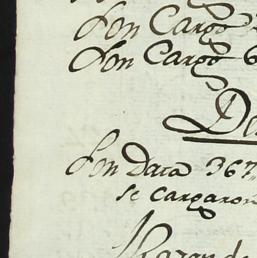 Son Cargo
Son Cargo 6
De
Son Data 367
se cargaron
Razon de